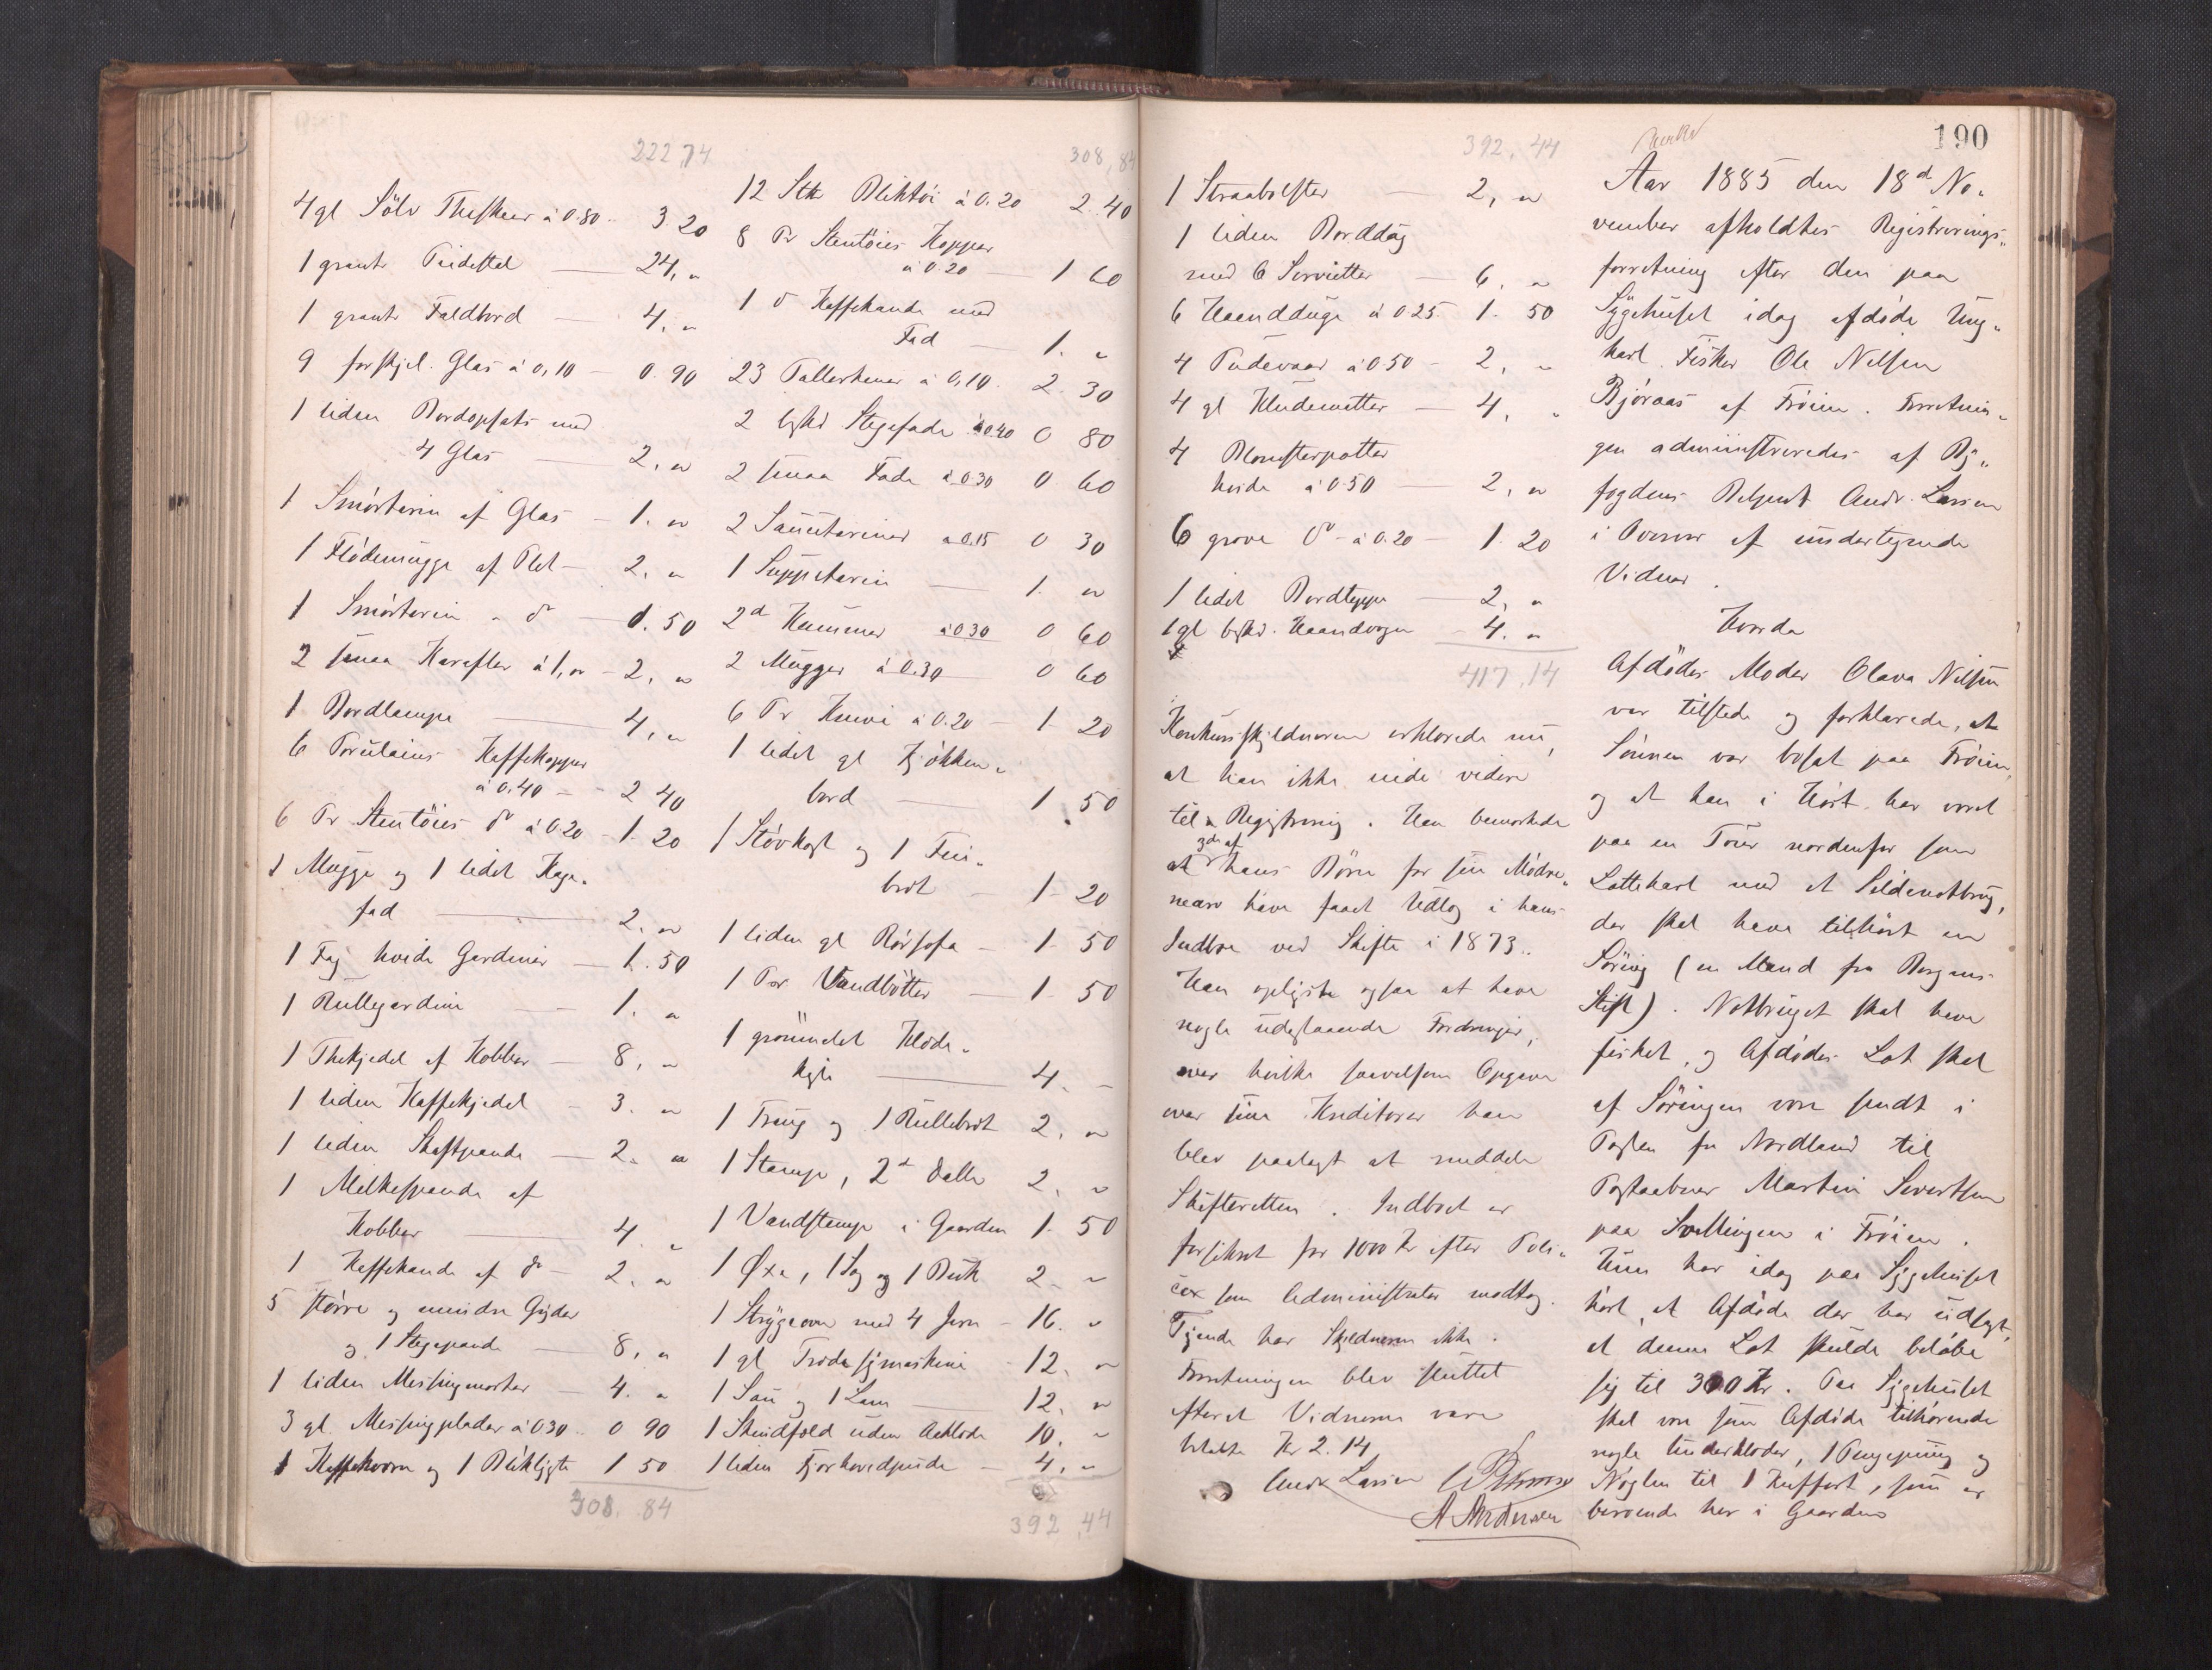 222,74
4 gl Sölv Theskeer à 0.80 3 20
1 grønt 24, "
1 grønt Faldbord 4, "
9 forskjel. Glas à 0,10 - 0. 90
1 liden Bordopsats med
4 Glas 2, "
1 Smörterin af Glas - 1. "
1 Flödemugge af Plet - 2, "
1 Smörterin " do 1. 50
2 smaa Karafler à 1, " - 2, "
1 Bordlampe 4, "
6 Porcelains Kaffekopper
à 0.40 - 2 40
6 Pr Stentöies do à 0.20 - 1. 20
1 Mugge og 1 lidet Kage-
fad 2. "
1 Fag hvide Gardiner - 1. 50
1 Rullegardin 1. "
1 Thekjedel af Kobber 8, "
1 liden Kaffekjedel - 3. "
1 liden Skaftpande - 2. "
1 Melkespand af
Kobber 4. "
1 Kaffekande af do - 2. "
5 större og mindre Gryder
og 1 Stegepande 8, "
1 liden Messingmorter 4. "
3 gl. Messingplader à 0.30 0 90
1 Kaffekvern og 1 Bliklygte 1 50
308. 84
308,84
12 Stk Bliktöi à 0.20 2. 40
8 Pr Stentöies Kopper
à 0.20 1 60
1 do Kaffekande med
Fad 1. "
23 Tallerkener à 0,10. 2. 30
2 beskd Stegefade à 0.40 0 80
2 smaa Fade à 0.30 0 60
2 à 0.15 0 30
1 Suppeterin 1. "
2 d Kummer à 0.30 0 60
2 Mugger à 0.30 0 60
6 Pr Knive à 0.20 - 1. 20
1 lidet gl Kjökken-
bord 1. 50
1 Stövkost og 1 Fei-
bret - 1. 20
1 liden gl Rörsofa - 1. 50
1 Par Vandbötter 1. 50
1 grönmalet Klæde-
kiste 4. -
1 Traug og 1 Rullebret 2, "
1 Stamp, 2 d Daller 2, "
1 Vandstamp i Gaarden 1. 50
1 Øxe, 1 Sag og 1 2. "
1 Strygeovn med 4 Jern - 16. "
1 gl Træde symaskine 12. "
1 Sau og 1 Lam 12. "
1 Skindfeld uden Aaklæde 10. "
1 liden Fjærhovedpude - 4, "
392,44
392,44
1 Straabolster 2, "
1 liden Borddug
med 6 Servietter 6, "
6 Haandduge à 0.25 1. 50
4 Pudevaar à 0.50 - 2, "
4 gl 4, "
4 Blomsterpotter
hvide à 0.50 2, "
6 grove do - à 0.20 - 1. 20
1 lidet Bordteppe 2, "
1 gl beskd. Haandvogn - 4. "
417.14
Konkursskyldneren erklærede nu,
at han ikke eiede videre
til Registrering. Han bemærkede
at 3de af hans Börn for sin Mödre-
nearv have faaet Udlæg i hans
Indbo ved Skifte i 1873.
Han oplyste ogsaa at have
nogle udestaaende Fordringer,
over hvilke saavelsom Opgave
over sine Kreditorer han
blev paalagt at meddele
Skifteretten. Indboet er
forsikret for 1000 Kr efter Poli-
ce som Administrator modtog.
Tjende har Skyldneren ikke.
Forretningen blev sluttet
efterat Vidnerne vare
betalte Kr 2.14
Andr Larsen
A Andersen
190
Aar 1885 den 18d No-
vember afholdtes Registrerings-
forretning efter den paa
Sygehuset idag afdöde Ung-
karl. Fisker Ole Nilsen
Björaas af Fröien. Forretnin-
gen administreredes af By-
fogdens Betjent Andr. Larsen
i Overvær af undertegnede
Vidner.
Hvorda
Afdödes Moder Olava Nilsen
var tilstede og forklarede, at
Sönnen var bosat paa Fröien,
og at han i Höst har været
paa en Tour nordenfor som
Lottekarl med et Sildenotbrug,
der skal have tilhört en
Söring (en Mand fra Bergens
Stift). Notbruget skal have
fisket, og Afdödes Lot skal
af Söringen være sendt i
Posten fra Nordland til
Postaabner Martin Sivertsen
paa Svellingen i Fröien.
Hun har idag paa Sygehuset
hört, at Afdöde der har udsagt,
at denne Lot skulde belöbe
sig til 300 Kr. Paa Sygehuset
skal være som Afdöde tilhörende
nogle Underklæder, 1 Pengepung og
Nøglen til 1 Kuffert, som er
beroende her i Gaarden